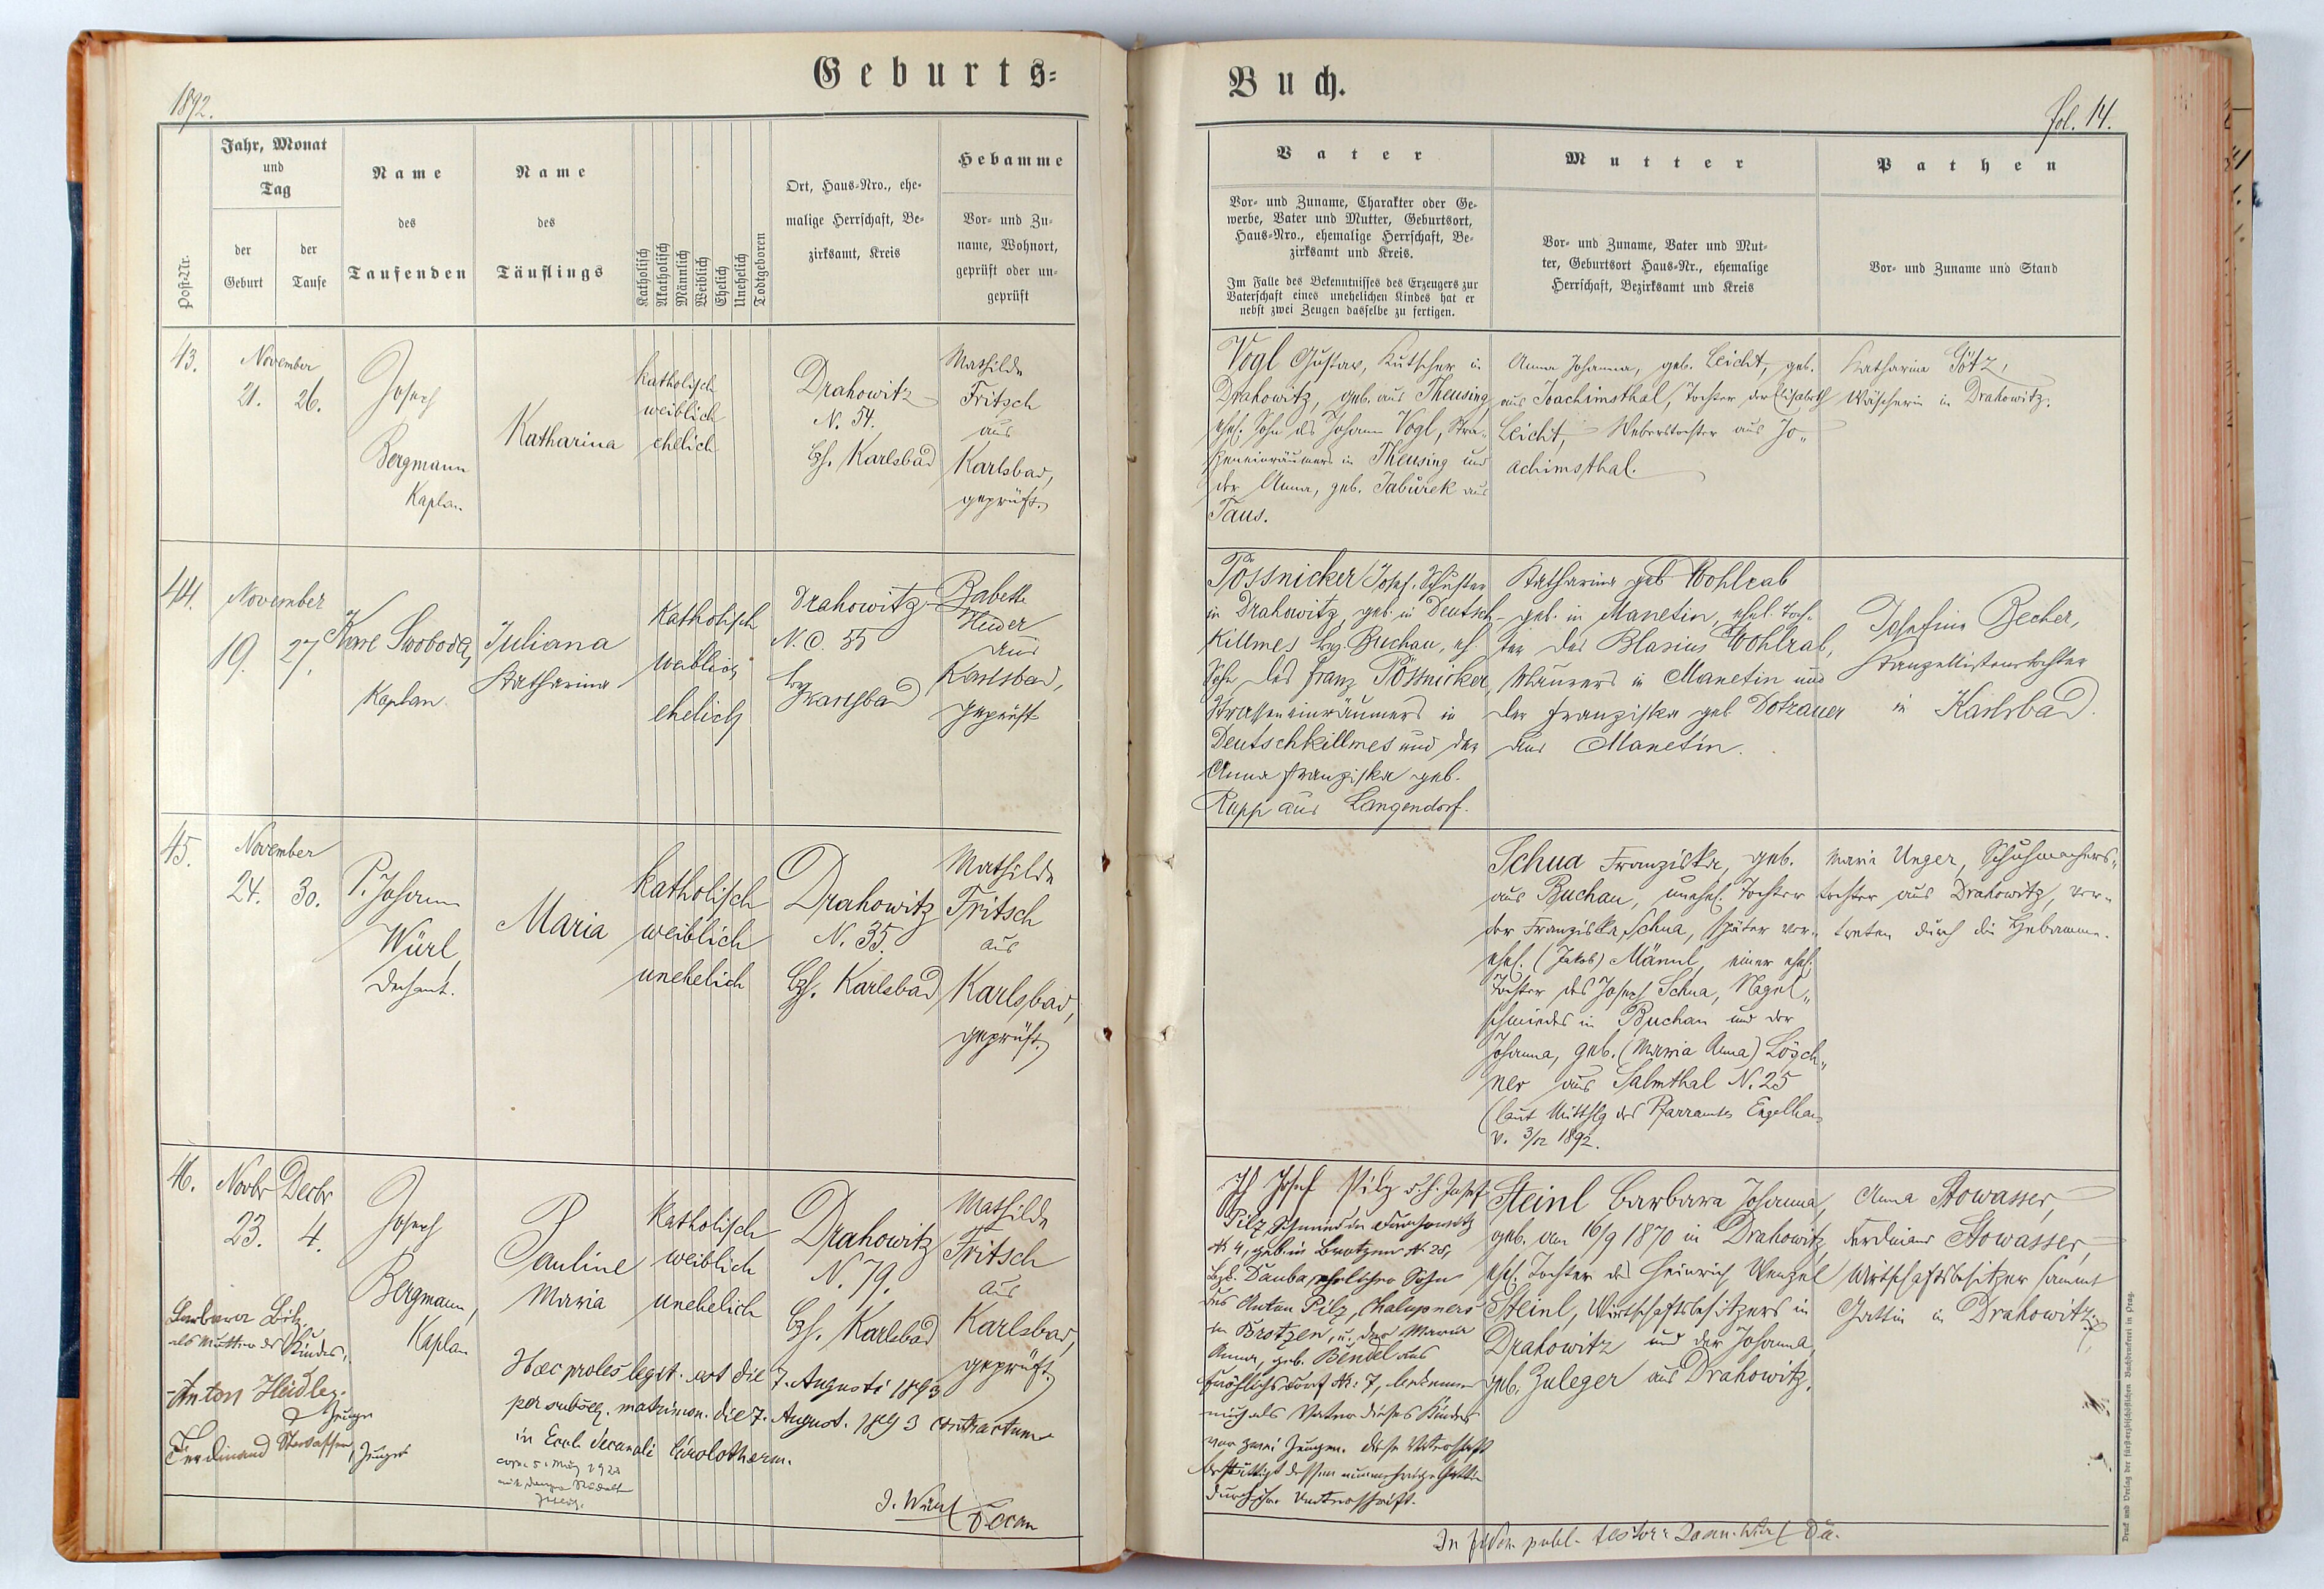 Geburts-
1892.
Post-Nr.
Jahr, Monat
und
Tag
der
Geburt
der
Taufe
Name
des
Taufenden
Name
des
Täuflings
Katholisch
Akatholisch
Männlich
Weiblich
Ehelich
Unehelich
Todtgeboren
Ort, Haus-Nro., ehe-
malige Herrschaft, Be-
zirksamt, Kreis
Hebamme
Vor- und Zu-
name, Wohnort,
geprüft oder un-
geprüft
43.
November
21. 26.
Josef
Bergmann
Kaplan
Katharina
katholisch
weiblich
ehelich
Drahowitz
N. 54.
Bzh. Karlsbad
Mathilde
Fritsch
aus
Karlsbad,
geprüft.
44.
November
19. 27.
Karl Swoboda,
Kaplan.
Juliana
Katharina
Katholisch
weiblich
ehelich
Drahowitz
N. C. 55
Karlsbad
Babette
aus
Karlsbad,
geprüft
45.
November
24. 30.
P. Johann
Würl,
Dechant.
Maria
katholisch
weiblich
unehelich
Drahowitz
N. 35.
Bzh. Karlsbad
Mathilde
Fritsch
aus
Karlsbad,
geprüft.
46.
Novbr Decbr
23. 4.
Josef
Bergmann,
Kaplan
Pauline
Maria
katholisch
weiblich
unehelich
Drahowitz
N. 79.
Bzh. Karlsbad
Mathilde
Fritsch
aus
Karlsbad,
geprüft.
Barbara
als Mutter des Kindes.
Anton Heidler
Zeuge
Ferdinand Stowasser, Zeuge
Haec proles legit. est die 7. Augusti 1893
per subseq. matrimon. die 7. August. 1893 contractum
in Eccl. decanali
J. Würl
Buch.
Fol. 14.
Vater
Vor- und Zuname, Charakter oder Ge-
werbe, Vater und Mutter, Geburtsort,
Haus-Nro., ehemalige Herrschaft, Be-
zirksamt und Kreis.
Im Falle des Bekenntnisses des Erzeugers zur
Vaterschaft eines unehelichen Kindes hat er
nebst zwei Zeugen dasselbe zu fertigen.
Mutter
Vor- und Zuname, Vater und Mut-
ter, Geburtsort Haus-Nr., ehemalige
Herrschaft, Bezirksamt und Kreis
Pathen
Vor- und Zuname und Stand
Vogl Gustav, Kutscher in
Drahowitz, geb. aus Theusing,
ehel. Sohn des Johann Vogl, Stra-
ßeneinräumers in Theusing und
der Anna, geb. Jabůrek aus
Taus.
Anna Johanna, geb. Leicht, geb.
aus Joachimsthal, Tochter der Elisabeth
Leicht, Weberstochter aus Jo-
achimsthal.
Katharina Götz,
Wäscherin in Drahowitz.
Pössnicker Josef, Schuster
in Drahowitz, geb. in Deutsch-
Killmes Bez. Buchau, eh.
Sohn des Franz Pössnicker,
Strasseneinräumers in
Deutschkillmes und der
Anna Franziska geb.
Rupp aus Langendorf.
Katharina geb. Wohlrab
geb. in Manetin, ehel. Toch-
ter des Blasius Wohlrab,
Maurers in Manetin und
der Franziska geb. Dotzauer
aus Manetin.
Josefine Becher,
Kanzellistenstochter
in Karlsbad.
Schua Franziska, geb.
aus Buchau, unehel. Tochter
der Franziska Schua, später ver-
ehel. (Jakob) Männl, einer ehel.
Tochter des Josef Schua, Nagel-
schmieds in Buchau und der
Johanna, geb. (Maria Anna) Lösch-
ner aus Salmthal N. 25
(laut Mitthlg des Pfarramtes Engelhaus
v. 3/12 1892.
Maria Unger, Schuhmachers-
tochter aus Drahowitz, ver-
treten durch die Hebamme.
Ich Josef Pilz d. h. Josef
Pilz Schmied in Drahowitz
N 4, geb. in Brotzen N. 28,
Bzk. Dauba, ehelicher Sohn
des Anton Pilz, Chalupners
in Brotzen, u. der Maria
Anna, geb. Bendel aus
Fröhlichsdorf N: 7, bekenne
mich als Vater dieses Kindes
vor zwei Zeugen. Diese Vaterschaft
bestättigt dessen nunmehrige Gattin
durch ihre Unterschrift.
Steinl Barbara Johanna,
geb. am 16/9 1870 in Drahowitz,
ehel. Tochter des Heinrich Wenzel
Steinl, Wirtschaftsbesitzers in
Drahowitz und der Johanna,
geb. Zuleger aus Drahowitz.
Anna Stowasser,
Ferdinand Stowasser,
Wirtschaftsbesitzer sammt
Gattin in Drahowitz.
Druck und Verlag der fürsterzbischöflichen Buchdruckerei in Prag.